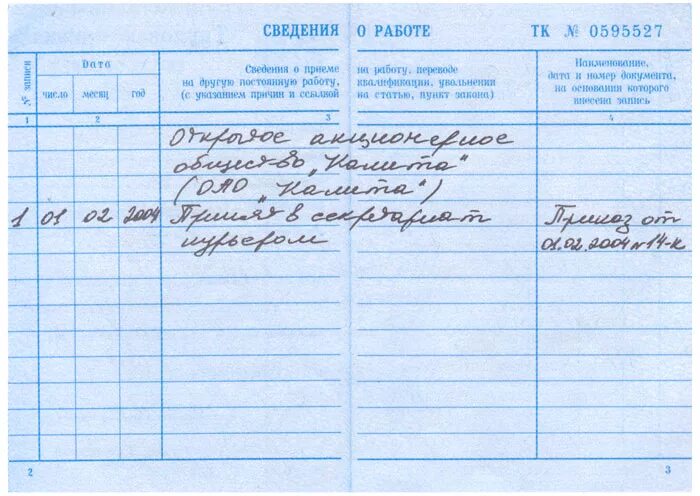 СВЕДЕНИЯ О РАБОТЕ ТК № 0595527
№ записи
Дата
число месяц год
Сведения о приеме на работу, переводе
на другую постоянную работу, квалификации, увольнении
(с указанием причин и ссылкой на статью, пункт закона)
Наименование,
дата и номер документа,
на основании которого
внесена запись
1 2 3 4
Открытое акционерное
общество „Калита“
(ОАО „Калита“)
1 01 02 2004 Принят в секретариат Приказ от
курьером 01.02.2004 № 14-к
2 3